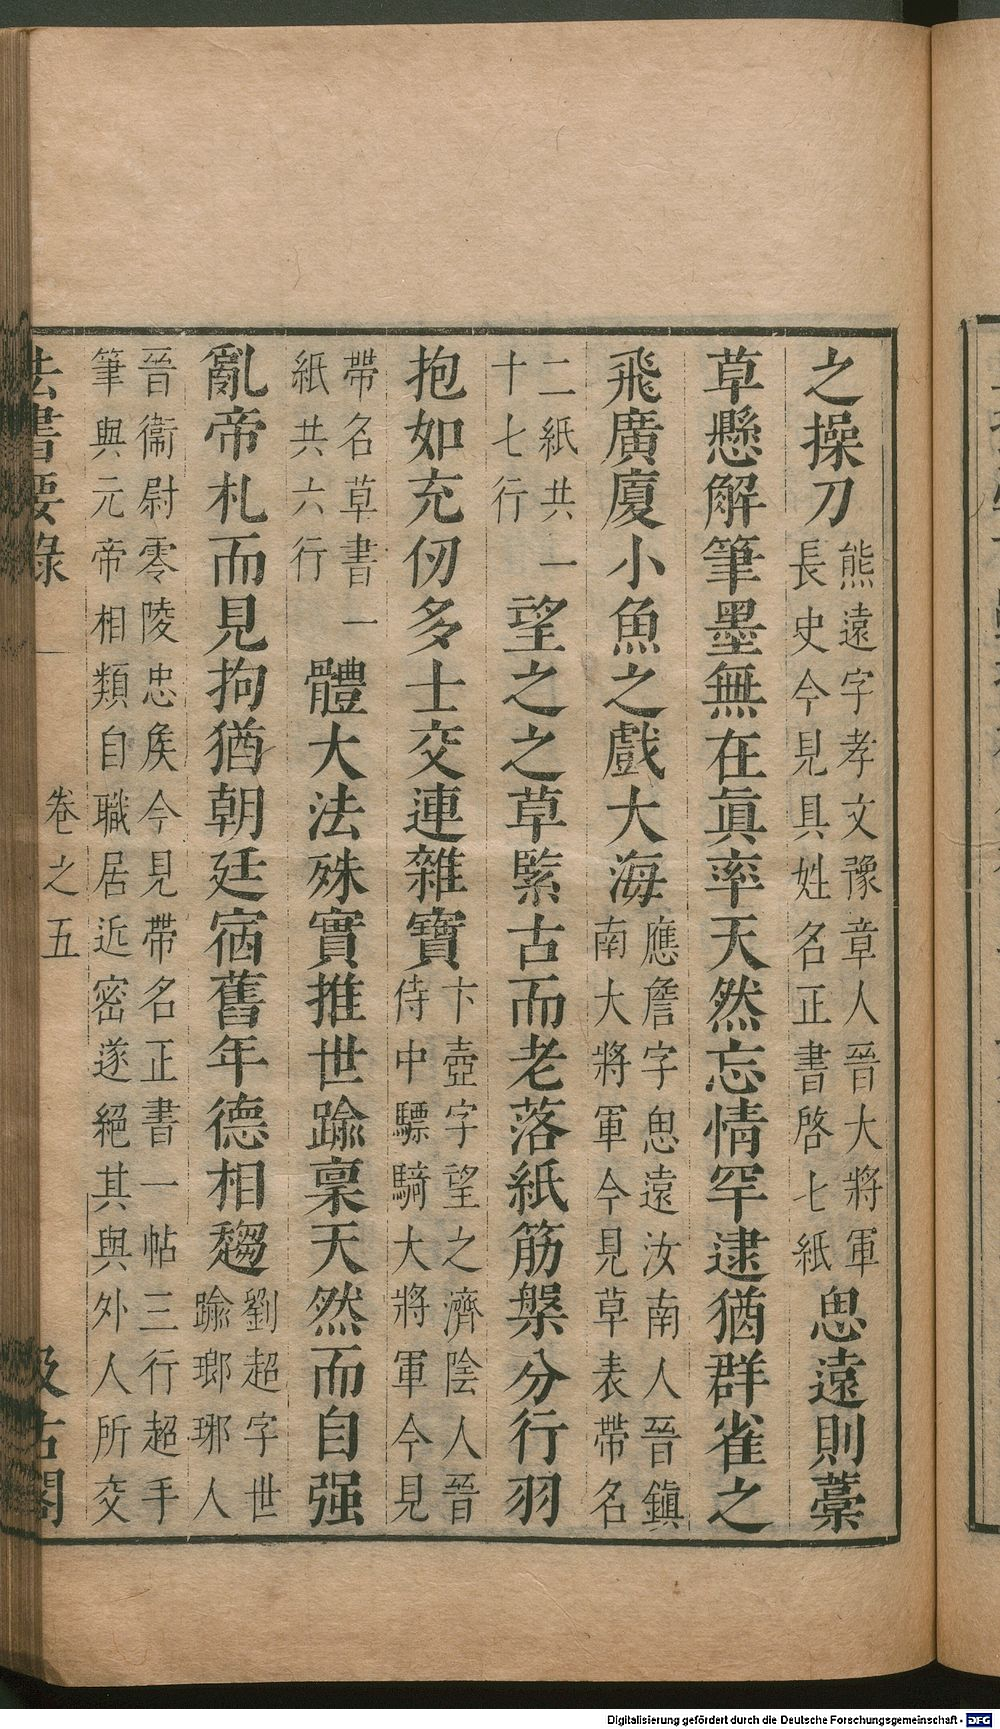 之操刀熊遠字孝文豫章人晉大將軍長史今見具姓名正書啓七紙思遠則藁
草懸解筆墨無在眞率天然忘情罕逮猶群雀之
飛廣廈小魚之戲大海應詹字思遠汝南人晉鎮南大將軍今見草表帶名
二紙共一十七行望之之草緊古而老落紙筋槃分行羽
抱如充仞多士交連雜寶卞壺字望之濟陰人晉侍中驃騎大將軍今見
帶名草書一紙共六行體大法殊實推世踰稟天然而自强
亂帝札而見拘猶朝廷宿舊年德相趨劉超字世踰瑯琊人
晉衞尉零陵忠矦今見帶名正書一帖三行超手筆與元帝相類自職居近密遂絕其與外人所交
法書要錄 卷之五 汲古閣
Digitalisierung gefördert durch die Deutsche Forschungsgemeinschaft - DFG